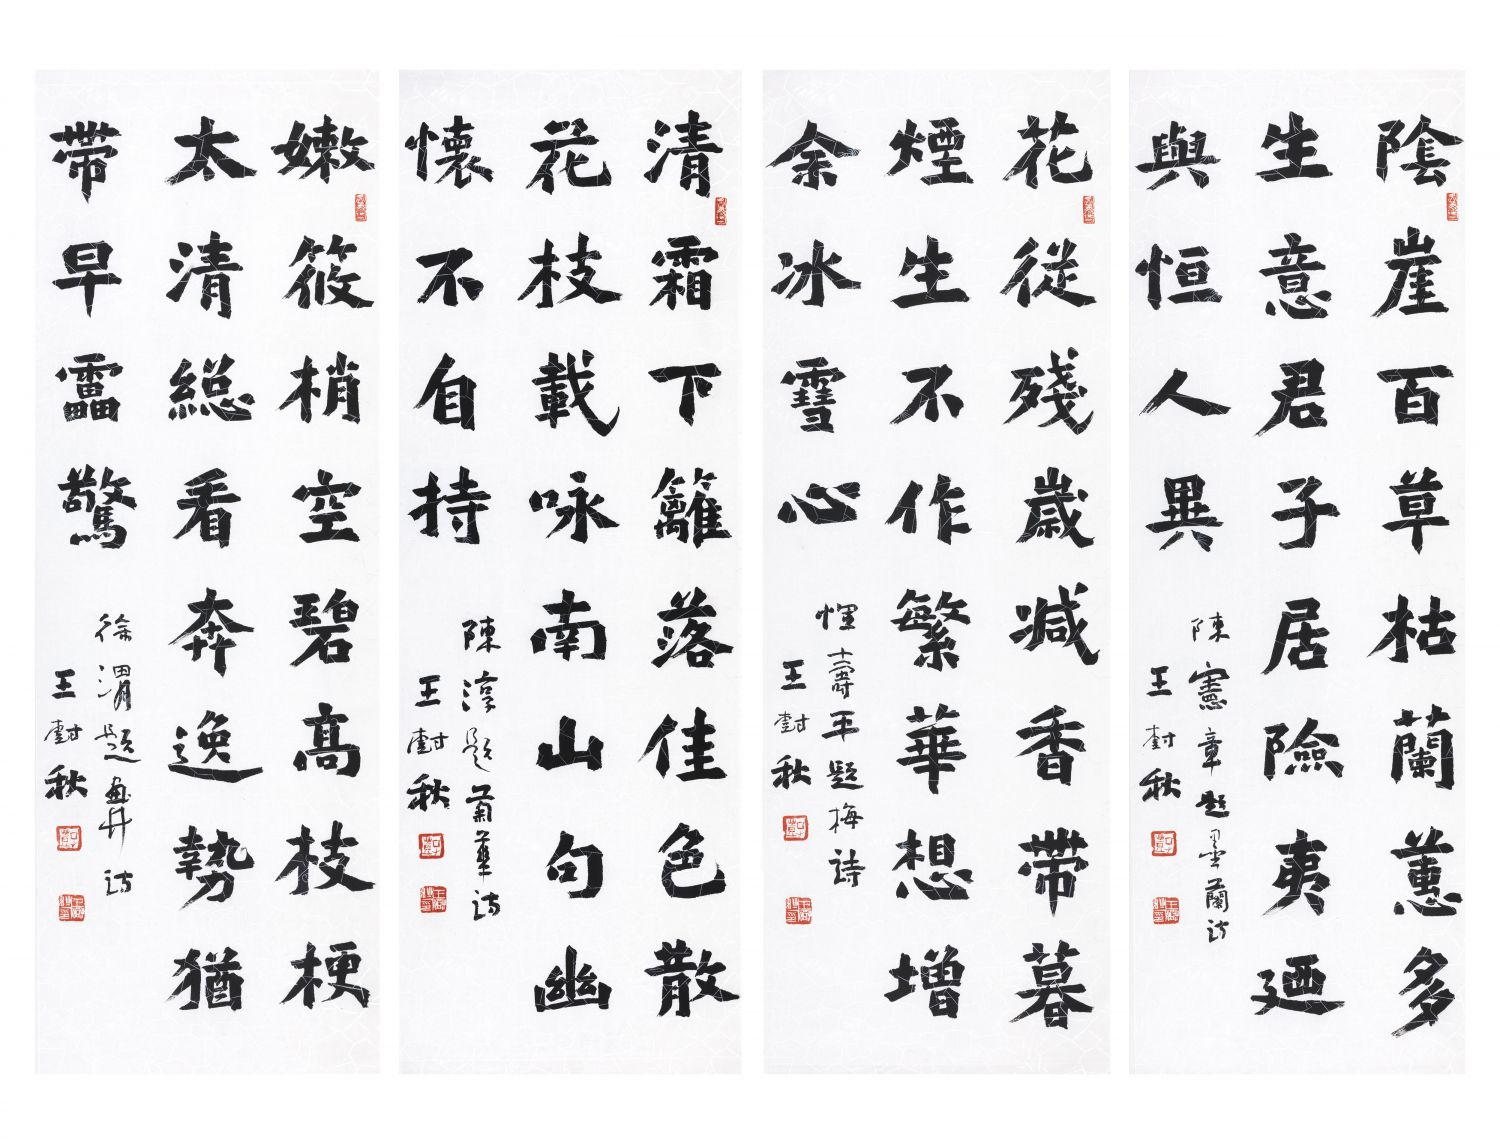 陰崖百草枯蘭蕙多
生意君子居險夷廼
與恒人異
陳憲章題墨蘭詩
王尌秋
花從殘歲減香帶暮
煙生不作繁華想增
余冰雪心
惲壽平題梅詩
王尌秋
清霜下籬落佳色散
花枝載咏南山句幽
懷不自持
陳淳題菊華詩
王尌秋
嫩筱梢空碧高枝梗
太清総看奔逸勢猶
帶早靁驚
徐渭題畫竹詩
王尌秋